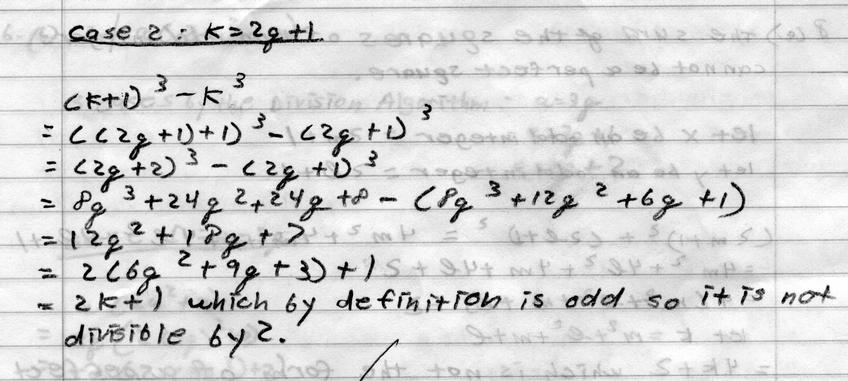 Case 2: k=2q+1.
(k+1)³-k³
= ((2q+1)+1)³-(2q+1)³
= (2q+2)³-(2q+1)³
= 8q³+24q²+24q+8-(8q³+12q²+6q+1)
= 12q²+18q+7
= 2(6q²+9q+3)+1
= 2k+1 which by definition is odd so it is not
divisible by 2.